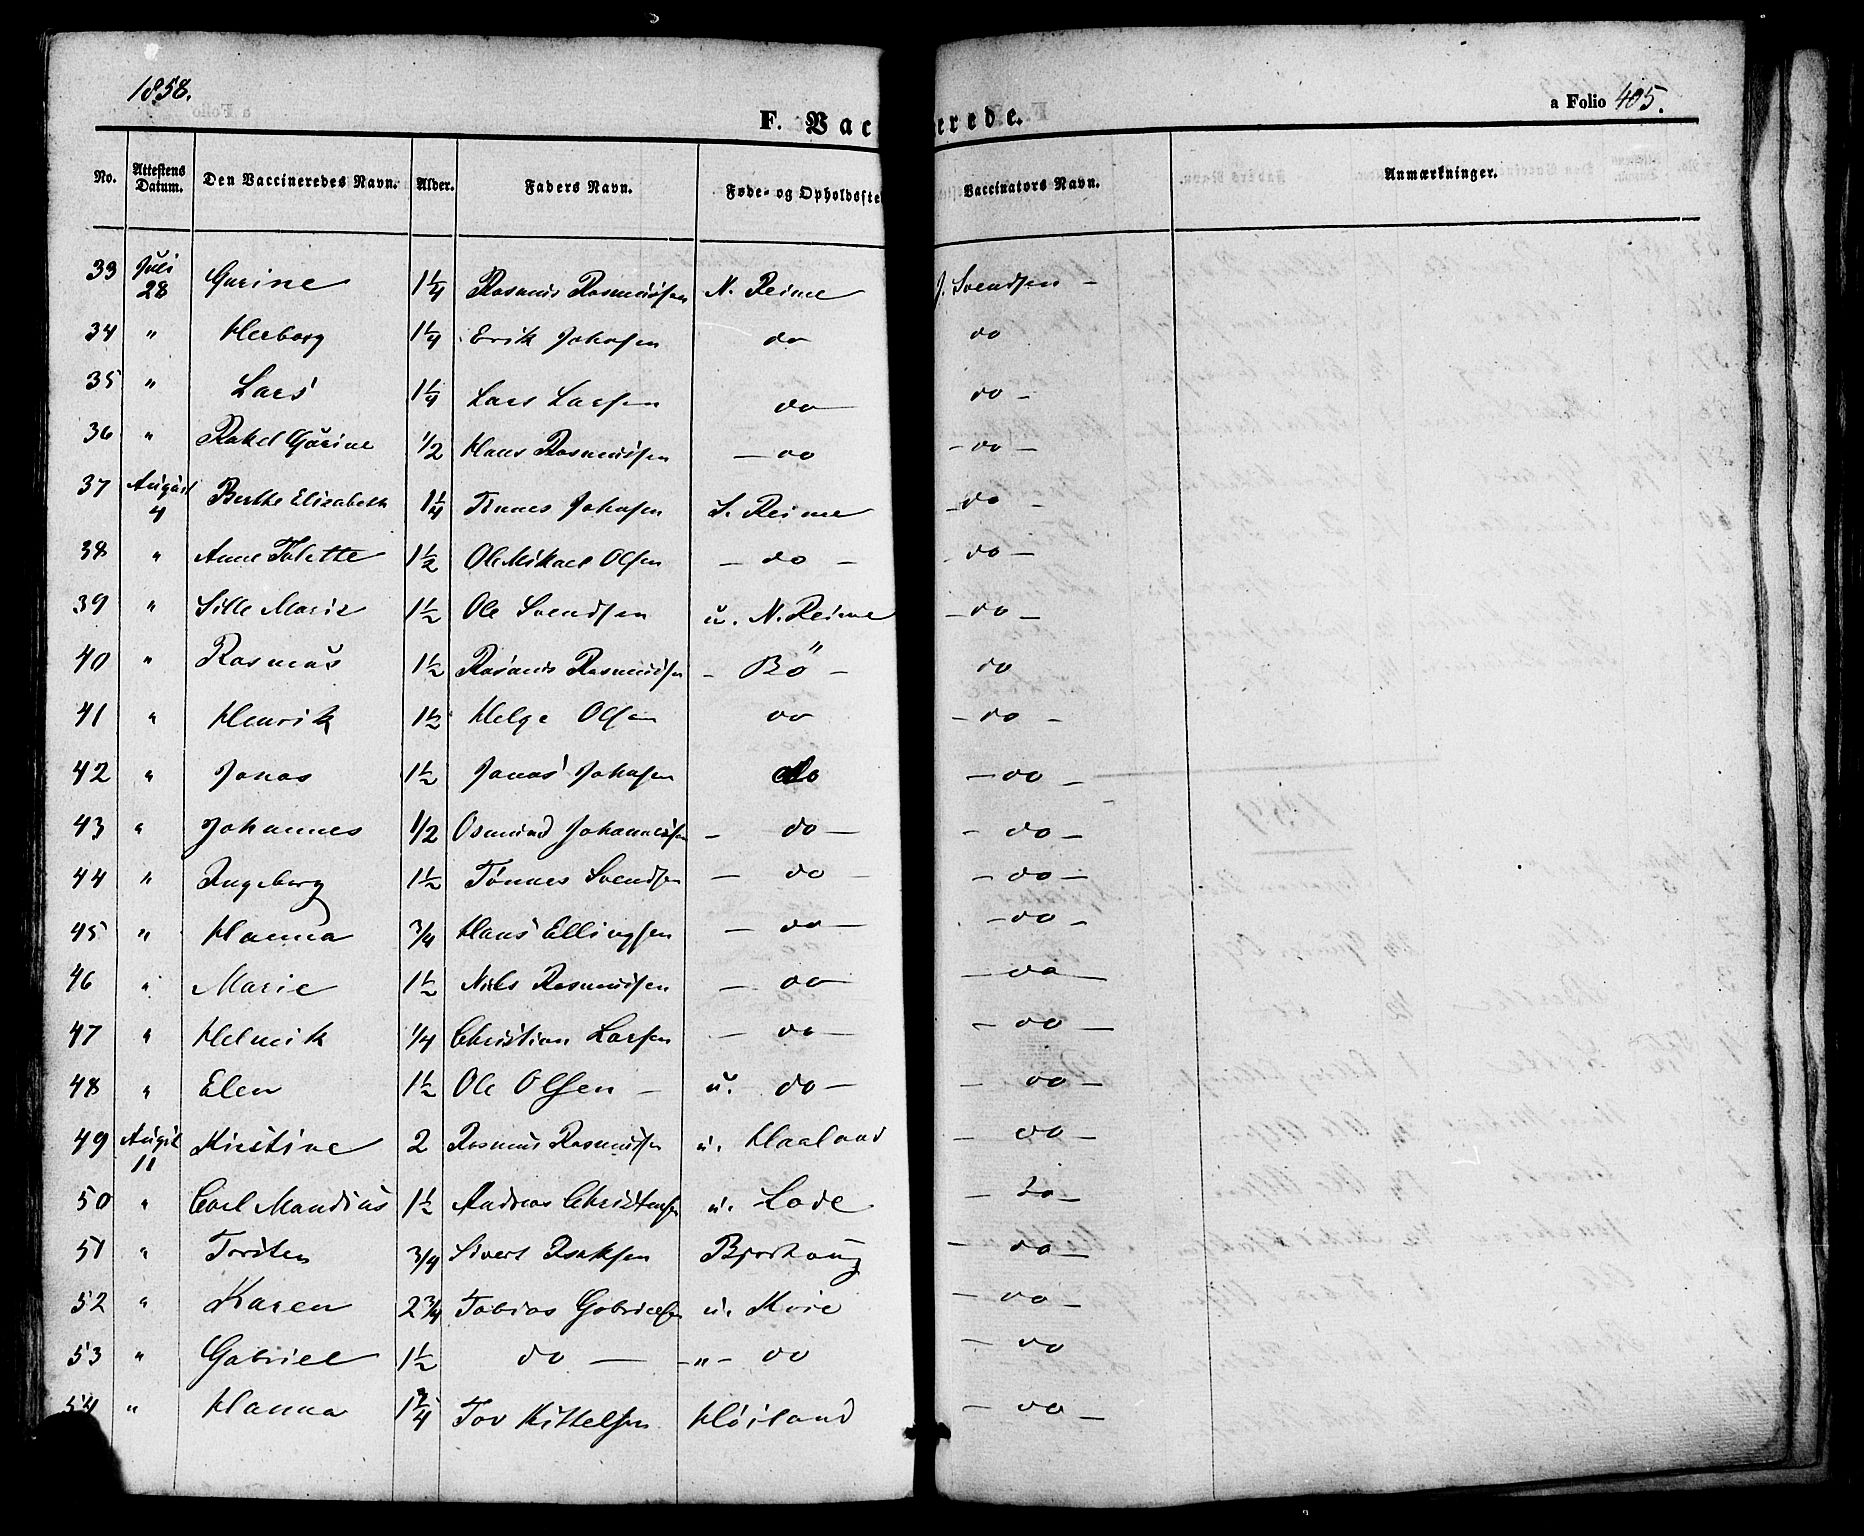 1858. a Folio 405.
F. Vac erede.
No. Attestens Datum. Den Vaccineredes Navn. Alder. Faders Navn. Føde- og Opholdsste Vaccinators Navn. Anmærkninger.
33 Juli 28 Gurine 1 1/4 Rasmus Rasmussen N. Reime J. Svendsen -
34 " Herborg 1 1/4 Erik Johnsen do do
35 " Lars 1 1/4 Lars Larsen do do -
36 " Rakel Gurine 1/2 Hans Rasmussen - do - do -
37 August 4 Berthe Elisabeth 1 1/4 Tønnes Johnsen S. Reime - do -
38 " Anne Tolette 1 1/2 Ole Mikael Olsen - do - - do -
39 " Sille Marie 1 1/2 Ole Svendsen u. N. Reime - do -
40 " Rasmus 1 1/2 Rasmus Rasmussen - Bö - do
41 " Henrik 1 1/2 Helge Olsen do - do -
42 " Jonas 1 1/2 Jonas Johnsen do - do -
43 " Johannes 1/2 Osmund Johannesen - do - - do -
44 " Ingeborg 1 1/2 Tønnes Svendsen - do - - do -
45 " Hanna 3/4 Hans Ellingsen - do - - do -
46 " Marie 1 1/2 Niels Rasmussen - do - - do -
47 " Helmik 1/4 Christian Larsen - do - - do -
48 " Elen 1 1/2 Ole Olsen - u. do - - do -
49 August 11 Kirstine 2 Rasmus Rasmussen u. Haaland - do -
50 " Carl Mandius 1 1/2 Andreas Christensen u. Lode - do -
51 " Torsten 3/4 Sivert Isaksen Bjorhaug - do -
52 " Karen 2 3/4 Tobias Gabrielsen u. Kvie - do -
53 " Gabriel 1 1/2 do - - " - do - do
54 " Hanna 1 3/4 Tov Kittelsen Høiland - do -